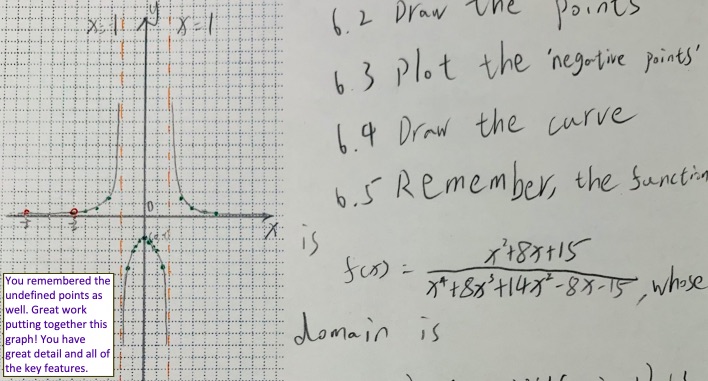 x=-1
x=1
y
0
x
-5
-3
You remembered the
undefined points as
well. Great work
putting together this
graph! You have
great detail and all of
the key features.
6.2 Draw the points
6.3 Plot the 'negative points'
6.4 Draw the curve
6.5 Remember, the function
is
f(x) = x²+8x+15 / x⁴+8x³+14x²-8x-15, whose
domain is